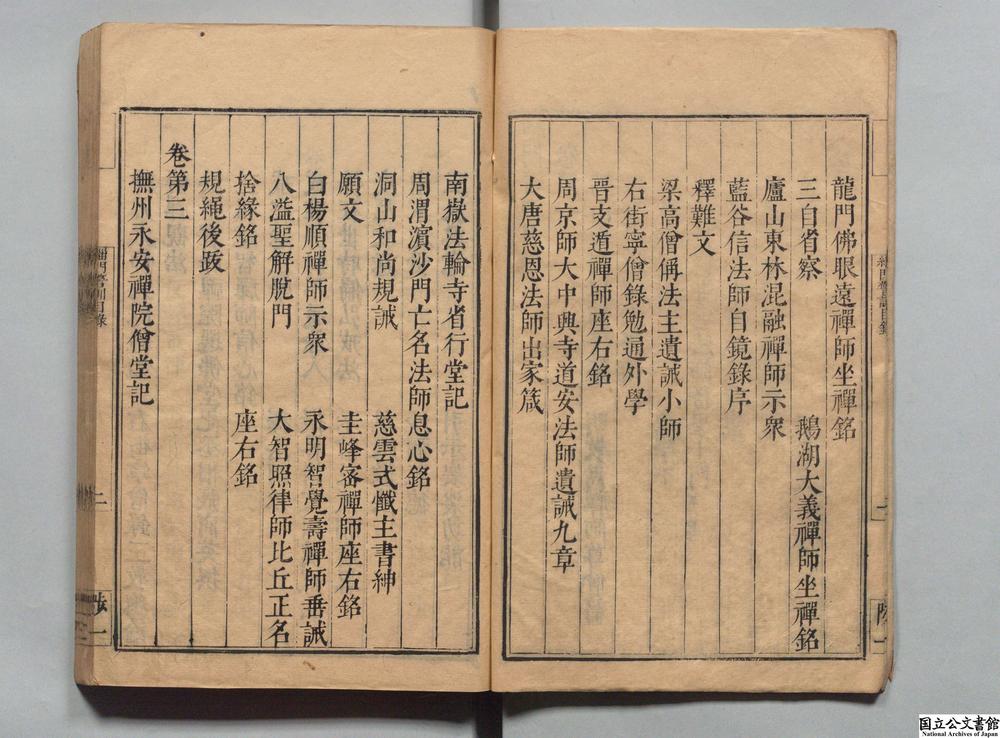 龍門佛眼遠禪師坐禪銘
三自省察　鵝湖大義禪師坐禪銘
廬山東林混融禪師示衆
藍谷信法師自鏡錄序
釋難文
梁高僧偁法主遺誡小師
右街寧僧錄勉通外學
晉支遁禪師座右銘
周京師大中興寺道安法師遺誡九章
大唐慈恩法師出家箴
南嶽法輪寺省行堂記
周渭濵沙門亡名法師息心銘
洞山和尚規誡　慈雲式懺主書紳
願文　圭峰密禪師座右銘
白楊順禪師示衆　永明智覺壽禪師垂誡
八溢聖解脫門　大智照律師比丘正名
捨緣銘　座右銘
規繩後跋
卷第三
撫州永安禪院僧堂記
二
国立公文書館
National Archives of Japan